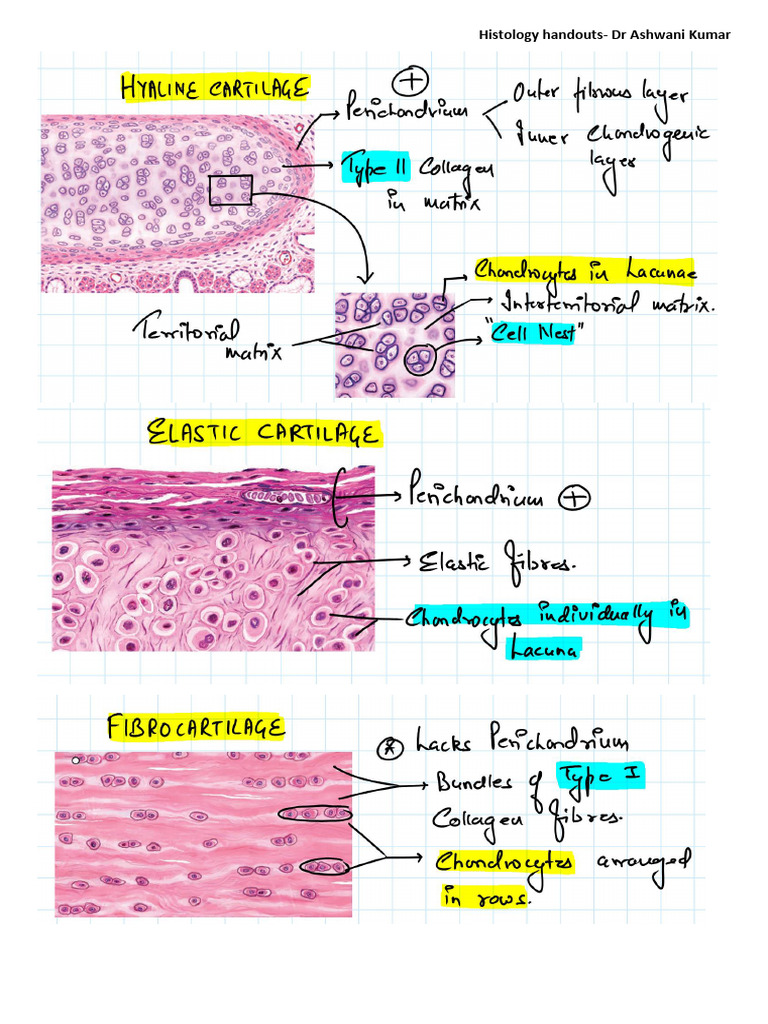 Histology handouts- Dr Ashwani Kumar
HYALINE CARTILAGE
+
Perichondrium
Outer fibrous layer
Inner Chondrogenic
layer
Type II Collagen
in matrix
Chondrocytes in Lacunae
Interterritorial matrix.
"Cell Nest"
Territorial
matrix
ELASTIC CARTILAGE
Perichondrium +
Elastic fibres.
Chondrocytes individually in
Lacuna
FIBROCARTILAGE
* Lacks Perichondrium
Bundles of Type I
Collagen fibres.
Chondrocytes arranged
in rows.